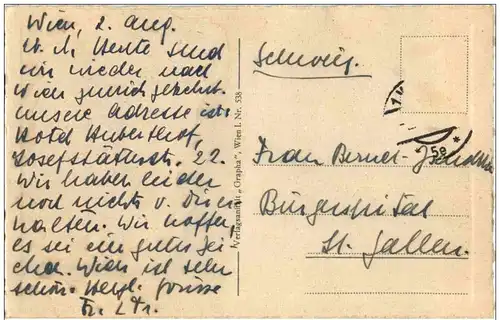 Wien, 2. Aug.
Heute sind
wir wieder nach
Wien zurück gekehrt.
unsere Adresse ist:
Hotel Huberthof,
Josefstätterstr. 22.
Wir haben leider
noch nichts v. Ihnen
Wir hoffen,
es sei ein gutes Zei
chen. Wien ist sehr
schön. Herzl. Grüsse
Verlagsanstalt „Grapha", Wien I. Nr. 538
Schweiz.
Frau Bernet-
Bürgerspital
St. Gallen.